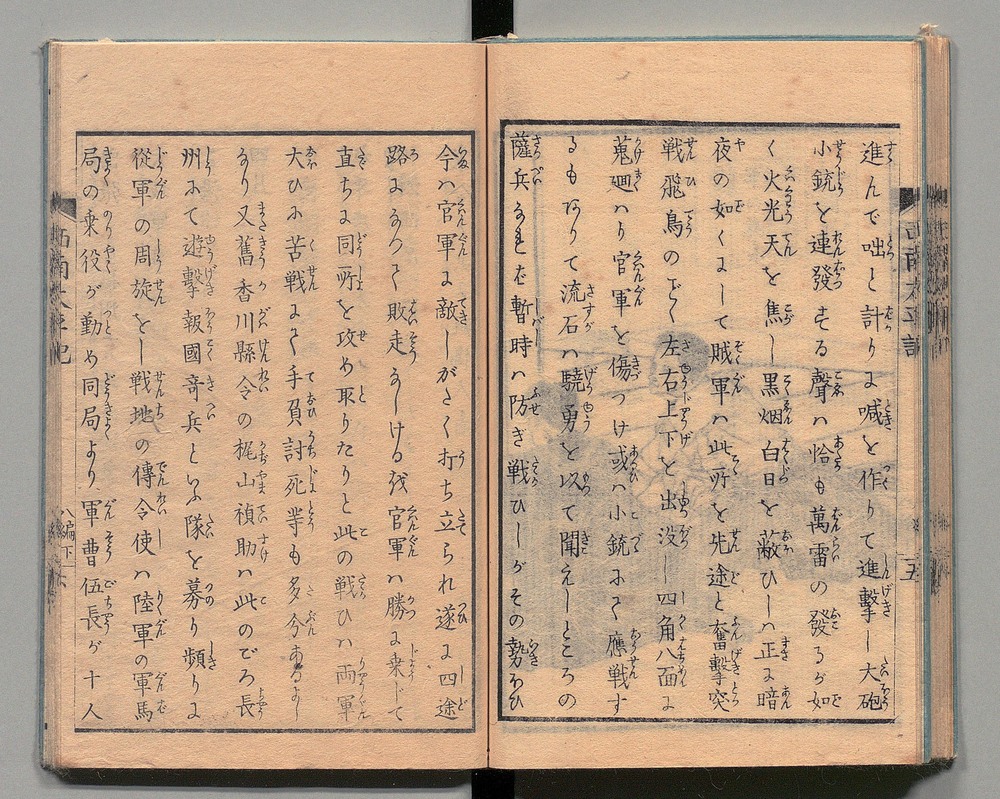 進んで咄と計りに喊を作りて進撃し大砲
小銃を連發する聲ハ恰も萬雷の發るが如
く火光天を焦し黒烟白日を蔽ひしハ正に暗
夜の如くにして賊軍ハ此所を先途と奮撃突
戦飛鳥のごく左右上下を出没し四角八面に
蒐廻ハり官軍を傷つけ或ハ小銃にて應戦す
るもありて流石ハ驍勇を以て聞えしところの
薩兵なれば暫時ハ防ぎ戦ひしがその勢ひ
五
今ハ官軍に敵しがたく打ち立られ遂に四途
路になつて敗走なしける我官軍ハ勝に乗じて
直ちに同所を攻め取りたりと此の戦ひハ両軍
大ひに苦戦にて手負討死等も多分あるよし
なり又舊香川縣令の梶山禎助ハ此のごろ長
州にて遊撃報國奇兵といふ隊を募り頻りに
從軍の周旋をし戦地の傳令使ハ陸軍の軍馬
局の乗役が勤め同局より軍曹伍長が十人
西南太平記
八編下
六